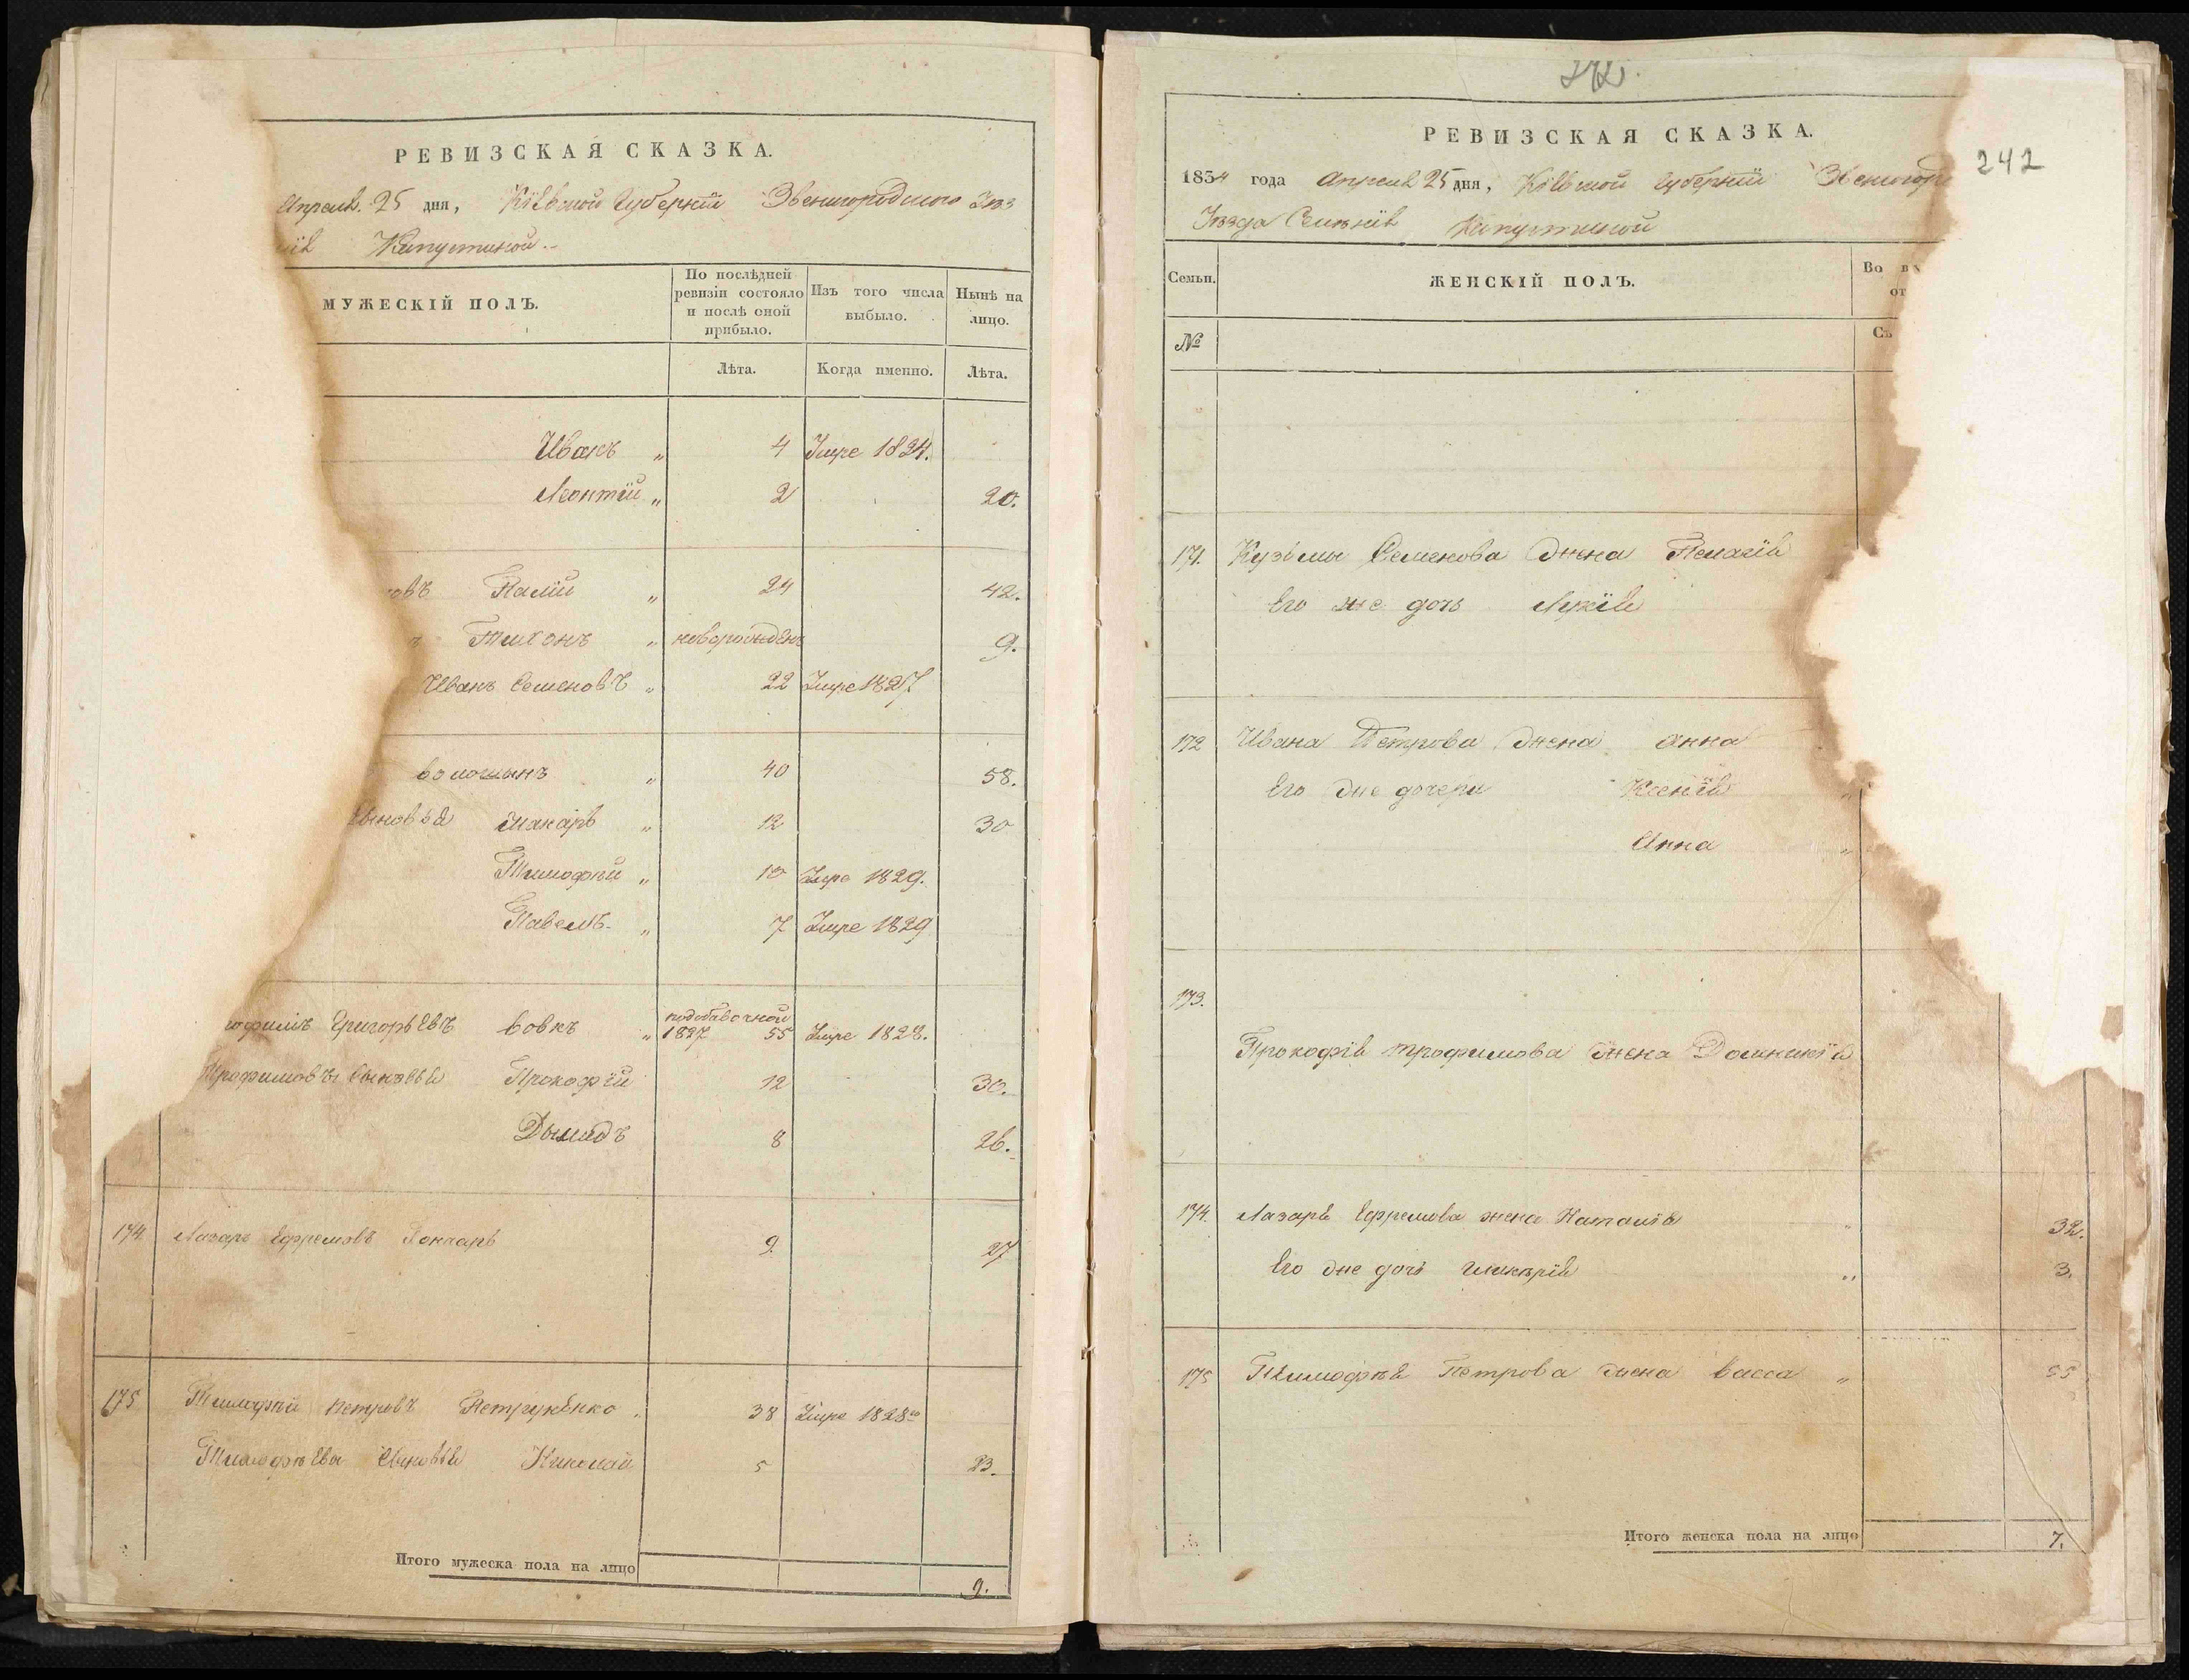 РЕВИЗСКАЯ СКАЗКА.
Апреля 25 дня, Кіевской Губерніи Звенигородского Уѣз
Капустиной
МУЖЕСКІЙ ПОЛЪ.
По послѣдней ревизіи состояло и послѣ оной прибыло.
Изъ того числа выбыло.
Нынѣ на лицо.
Лѣта.
Когда именно.
Лѣта.
Иванъ " 4 Умре 1824.
Леонтій " 2 20.
овъ Палій " 24 42.
Тихонъ " новорожденъ 9.
Иванъ Семеновъ " 22 Умре 1827
волошынъ " 40 58.
сыновья Макаръ " 12 30
Тимофѣй " 10 Умре 1829.
Павелъ " 7 Умре 1829
офимъ Григорьевъ вовкъ " подобавочной 1827 55 Умре 1828.
Трофимовы сыновья Прокофій 12 30.
Дымидъ 8 26.
174 Лазарь Ефремовъ Гончаръ 9. 27
175 Тимофѣй петровъ Петрукенко " 38 Умре 1828
Тимофѣева сыновья Николай 5 23.
Итого мужеска пола на лицо 9.
242
РЕВИЗСКАЯ СКАЗКА.
1834 года Апреля 25 дня, Кіевской Губерніи Звенигоро
Уѣзда Селенія Капустиной
Семьи.
ЖЕНСКІЙ ПОЛЪ.
Во в
от
№
Съ
171. Кузьмы Семенова жена Пелагія
Его же дочь Лукія
172 Ивана Петрова жена Анна
Его же дочери Ксенія "
Анна "
173.
Прокофія трофимова жена Домникія
174. Лазаря Ефремова жена Наталія " 32.
Его же дочь гликѣрія " 3.
175 Тимофѣя Петрова жена васса " 55
Итого женска пола на лицо 7.